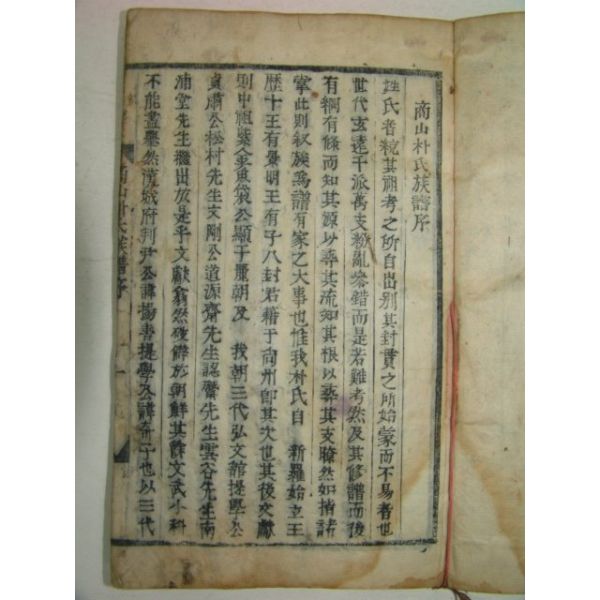 商山朴氏族譜序
姓氏者統其祖考之所自出別其封貫之所始蒙而不易者也
世代玄遠千派萬支紛亂參錯而是若難考然及其修譜而後
有綱有條而知其源以尋其流知其根以尋其支瞭然如指諸
掌此則叙族爲譜有家之大事也惟我朴氏自 新羅始立王
歷十王有景明王有子八封君籍于尙州卽其次也其後文獻
則中祖紫金魚袋公顯于麗朝及 我朝三代弘文館提學公
貞肅公松村先生文剛公道源齋先生認齋先生雲谷先生南
浦堂先生繼出於是乎文獻蔚然發輝於朝鮮其餘文武小科
不能盡擧然漢城府判尹公諱 書提學公諱 也以三代
商山朴氏族譜序 一